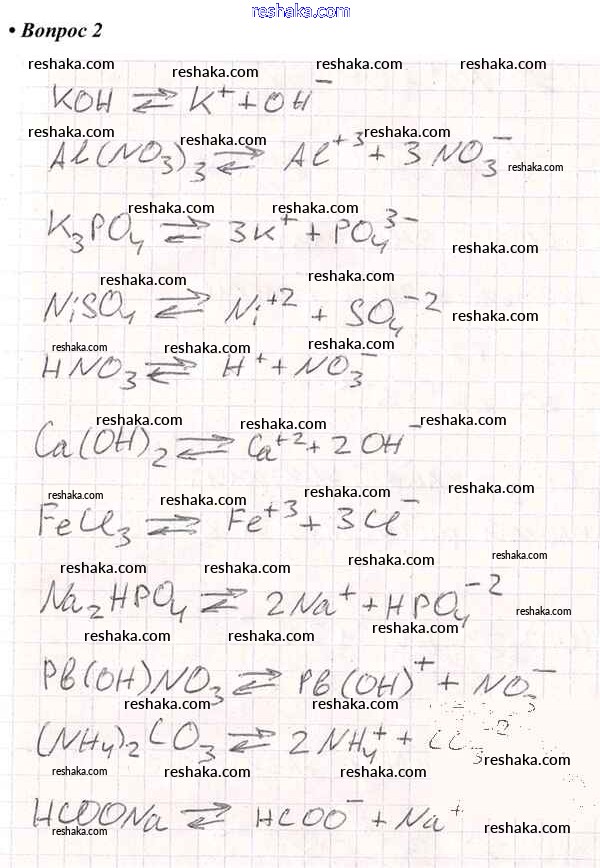 reshaka.com
• Вопрос 2
reshaka.com reshaka.com reshaka.com reshaka.com
KOH ⇄ K⁺ + OH⁻
reshaka.com reshaka.com reshaka.com
Al(NO₃)₃ ⇄ Al⁺³ + 3NO₃⁻
reshaka.com
reshaka.com reshaka.com
K₃PO₄ ⇄ 3K⁺ + PO₄³⁻
reshaka.com
reshaka.com reshaka.com
NiSO₄ ⇄ Ni⁺² + SO₄⁻²
reshaka.com
reshaka.com reshaka.com reshaka.com
HNO₃ ⇄ H⁺ + NO₃⁻
reshaka.com reshaka.com reshaka.com
Ca(OH)₂ ⇄ Ca⁺² + 2OH⁻
reshaka.com reshaka.com reshaka.com reshaka.com
FeCl₃ ⇄ Fe⁺³ + 3Cl⁻
reshaka.com reshaka.com
reshaka.com reshaka.com
Na₂HPO₄ ⇄ 2Na⁺ + HPO₄⁻²
reshaka.com
reshaka.com reshaka.com reshaka.com
Pb(OH)NO₃ ⇄ Pb(OH)⁺ + NO₃⁻
reshaka.com reshaka.com
(NH₄)₂CO₃ ⇄ 2NH₄⁺ + CO₃⁻²
reshaka.com
reshaka.com reshaka.com reshaka.com
HCOONa ⇄ HCOO⁻ + Na⁺
reshaka.com reshaka.com